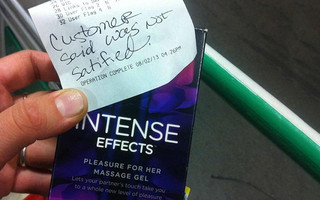 32 User Flag
Customer
said was not
satified.
OPERATION COMPLETE 08/02/13 04:26PM
INTENSE
EFFECTS™
PLEASURE FOR HER
MASSAGE GEL
Lets your partner's touch take you
to a whole new level of pleasure